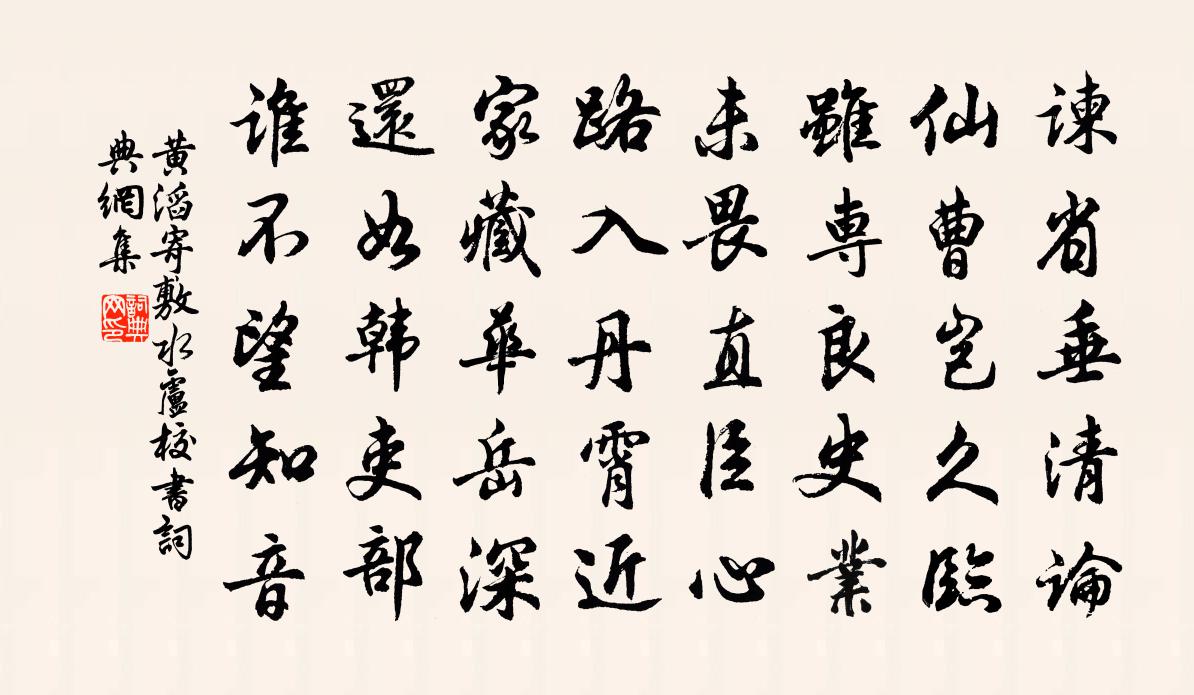 諫省垂清論
仙曹豈久臨
雖專良史業
未畏直臣心
路入丹霄近
家藏華岳深
還如韩吏部
誰不望知音
黄滔寄敷水盧校書詞
典網集
詞典
网印